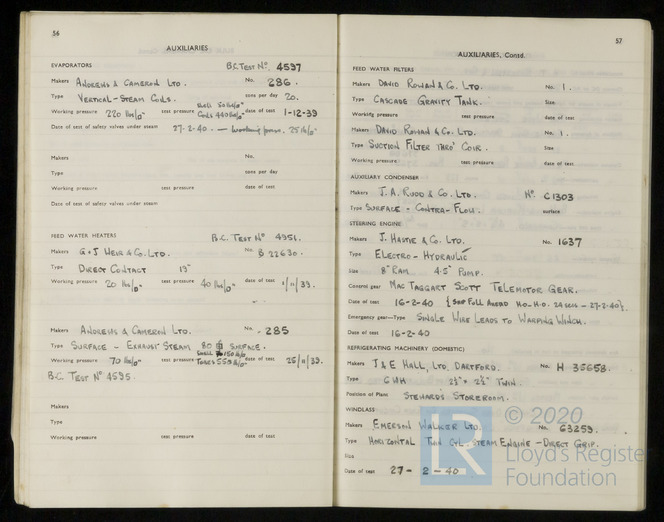 56
AUXILIARIES
EVAPORATORS B.C. TEST Nº. 4597
Makers ANDREWS & CAMERON LTD. No. 286.
Type VERTICAL-STEAM COILS. tons per day 20.
Working pressure 220 lbs/□" test pressure Shell 50 lb/□" Coils 440 lb/□" date of test 1-12-39
Date of test of safety valves under steam 27-2-40. — Working press. 25 lb/□"
Makers No.
Type tons per day
Working pressure test pressure date of test
Date of test of safety valves under steam
FEED WATER HEATERS B.C. TEST Nº 4951.
Makers G & J WEIR & CO. LTD. No. B 22630.
Type DIRECT CONTACT 13"
Working pressure 20 lbs/□" test pressure 40 lbs/□" date of test 1/11/39.
Makers ANDREWS & CAMERON LTD. No. - 285
Type SURFACE - EXHAUST STEAM 80 SURFACE.
Working pressure 70 lbs/□" test pressure SHELL 150 lb/□" TUBES 550 lb/□" date of test 25/11/39.
B.C. TEST Nº 4595.
Makers
Type
Working pressure test pressure date of test
57
AUXILIARIES, Contd.
FEED WATER FILTERS
Makers DAVID ROWAN & CO. LTD. No. 1.
Type CASCADE GRAVITY TANK. Size
Working pressure test pressure date of test
Makers DAVID ROWAN & CO. LTD. No. 1.
Type SUCTION FILTER THRO' COIR. Size
Working pressure test pressure date of test
AUXILIARY CONDENSER
Makers J. A. RUDD & CO. LTD. Nº C1303
Type SURFACE - CONTRA-FLOW. surface
STEERING ENGINE
Makers J. HASTIE & CO. LTD. No. 1637
Type ELECTRO - HYDRAULIC
Size 8" RAM 4·5" PUMP.
Control gear MAC TAGGART SCOTT TELEMOTOR GEAR.
Date of test 16-2-40 {SHIP FULL AHEAD HO-H.O. 24 secs - 27-2-40}
Emergency gear—Type SINGLE WIRE LEADS TO WARPING WINCH.
Date of test 16-2-40
REFRIGERATING MACHINERY (DOMESTIC)
Makers J & E HALL, LTD. DARTFORD. No. H 35658.
Type 2½" × 2½" TWIN.
Position of Plant STEWARDS STOREROOM.
WINDLASS
Makers EMERSON WALKER LTD. No. 63259.
Type HORIZONTAL TWIN CYL. STEAM ENGINE - DIRECT GRIP.
Size
Date of test 27 - 2 - 40
LR
© 2020
Lloyd's Register
Foundation